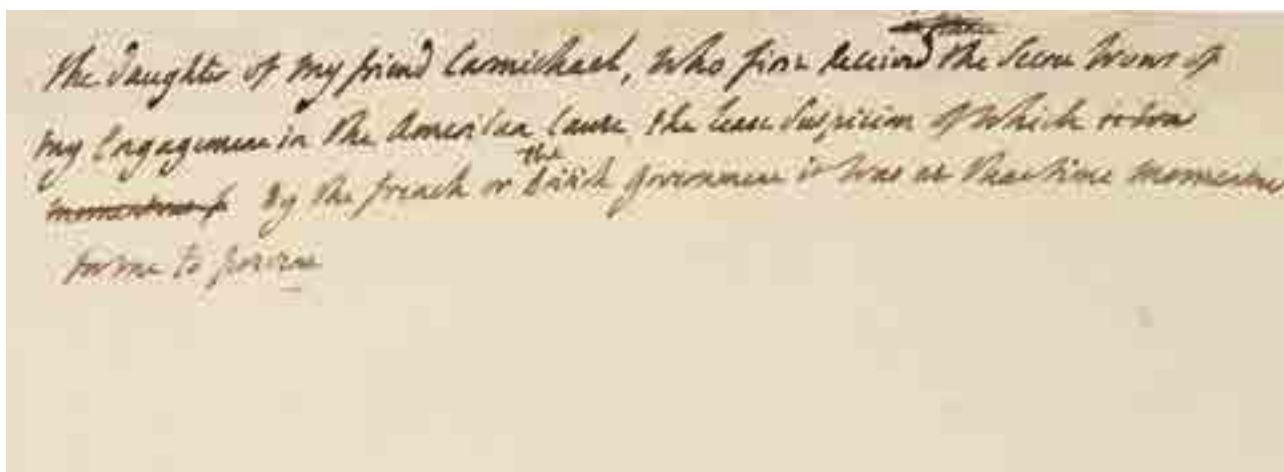 the daughter of my friend Carmichael, who first Received the Secret Vows of
my Engagement in the American Cause the least Suspicion of Which
by the french or the british government it was at that time momentous
for me to prevent